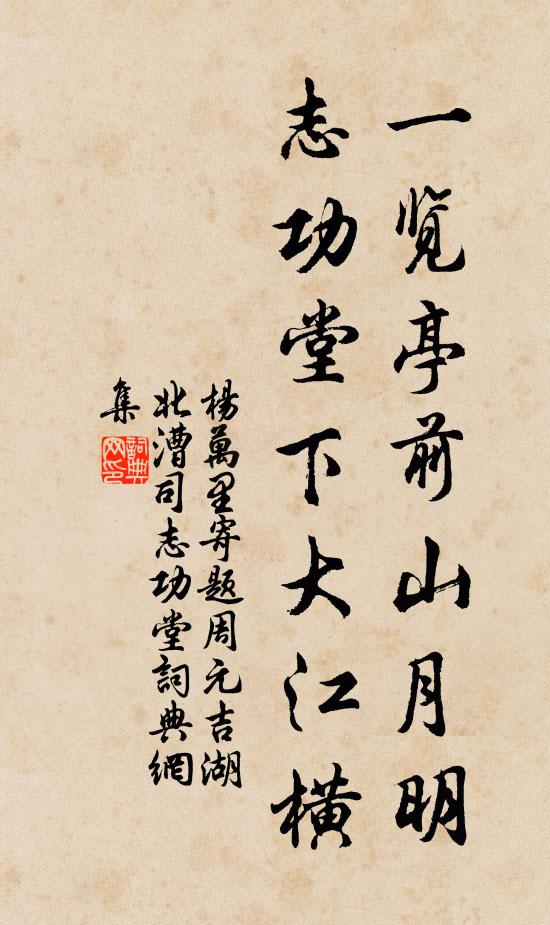 一览亭前山月明
志功堂下大江橫
楊萬里寄題周元吉湖
北漕司志功堂詞典網
集
詞典
网印